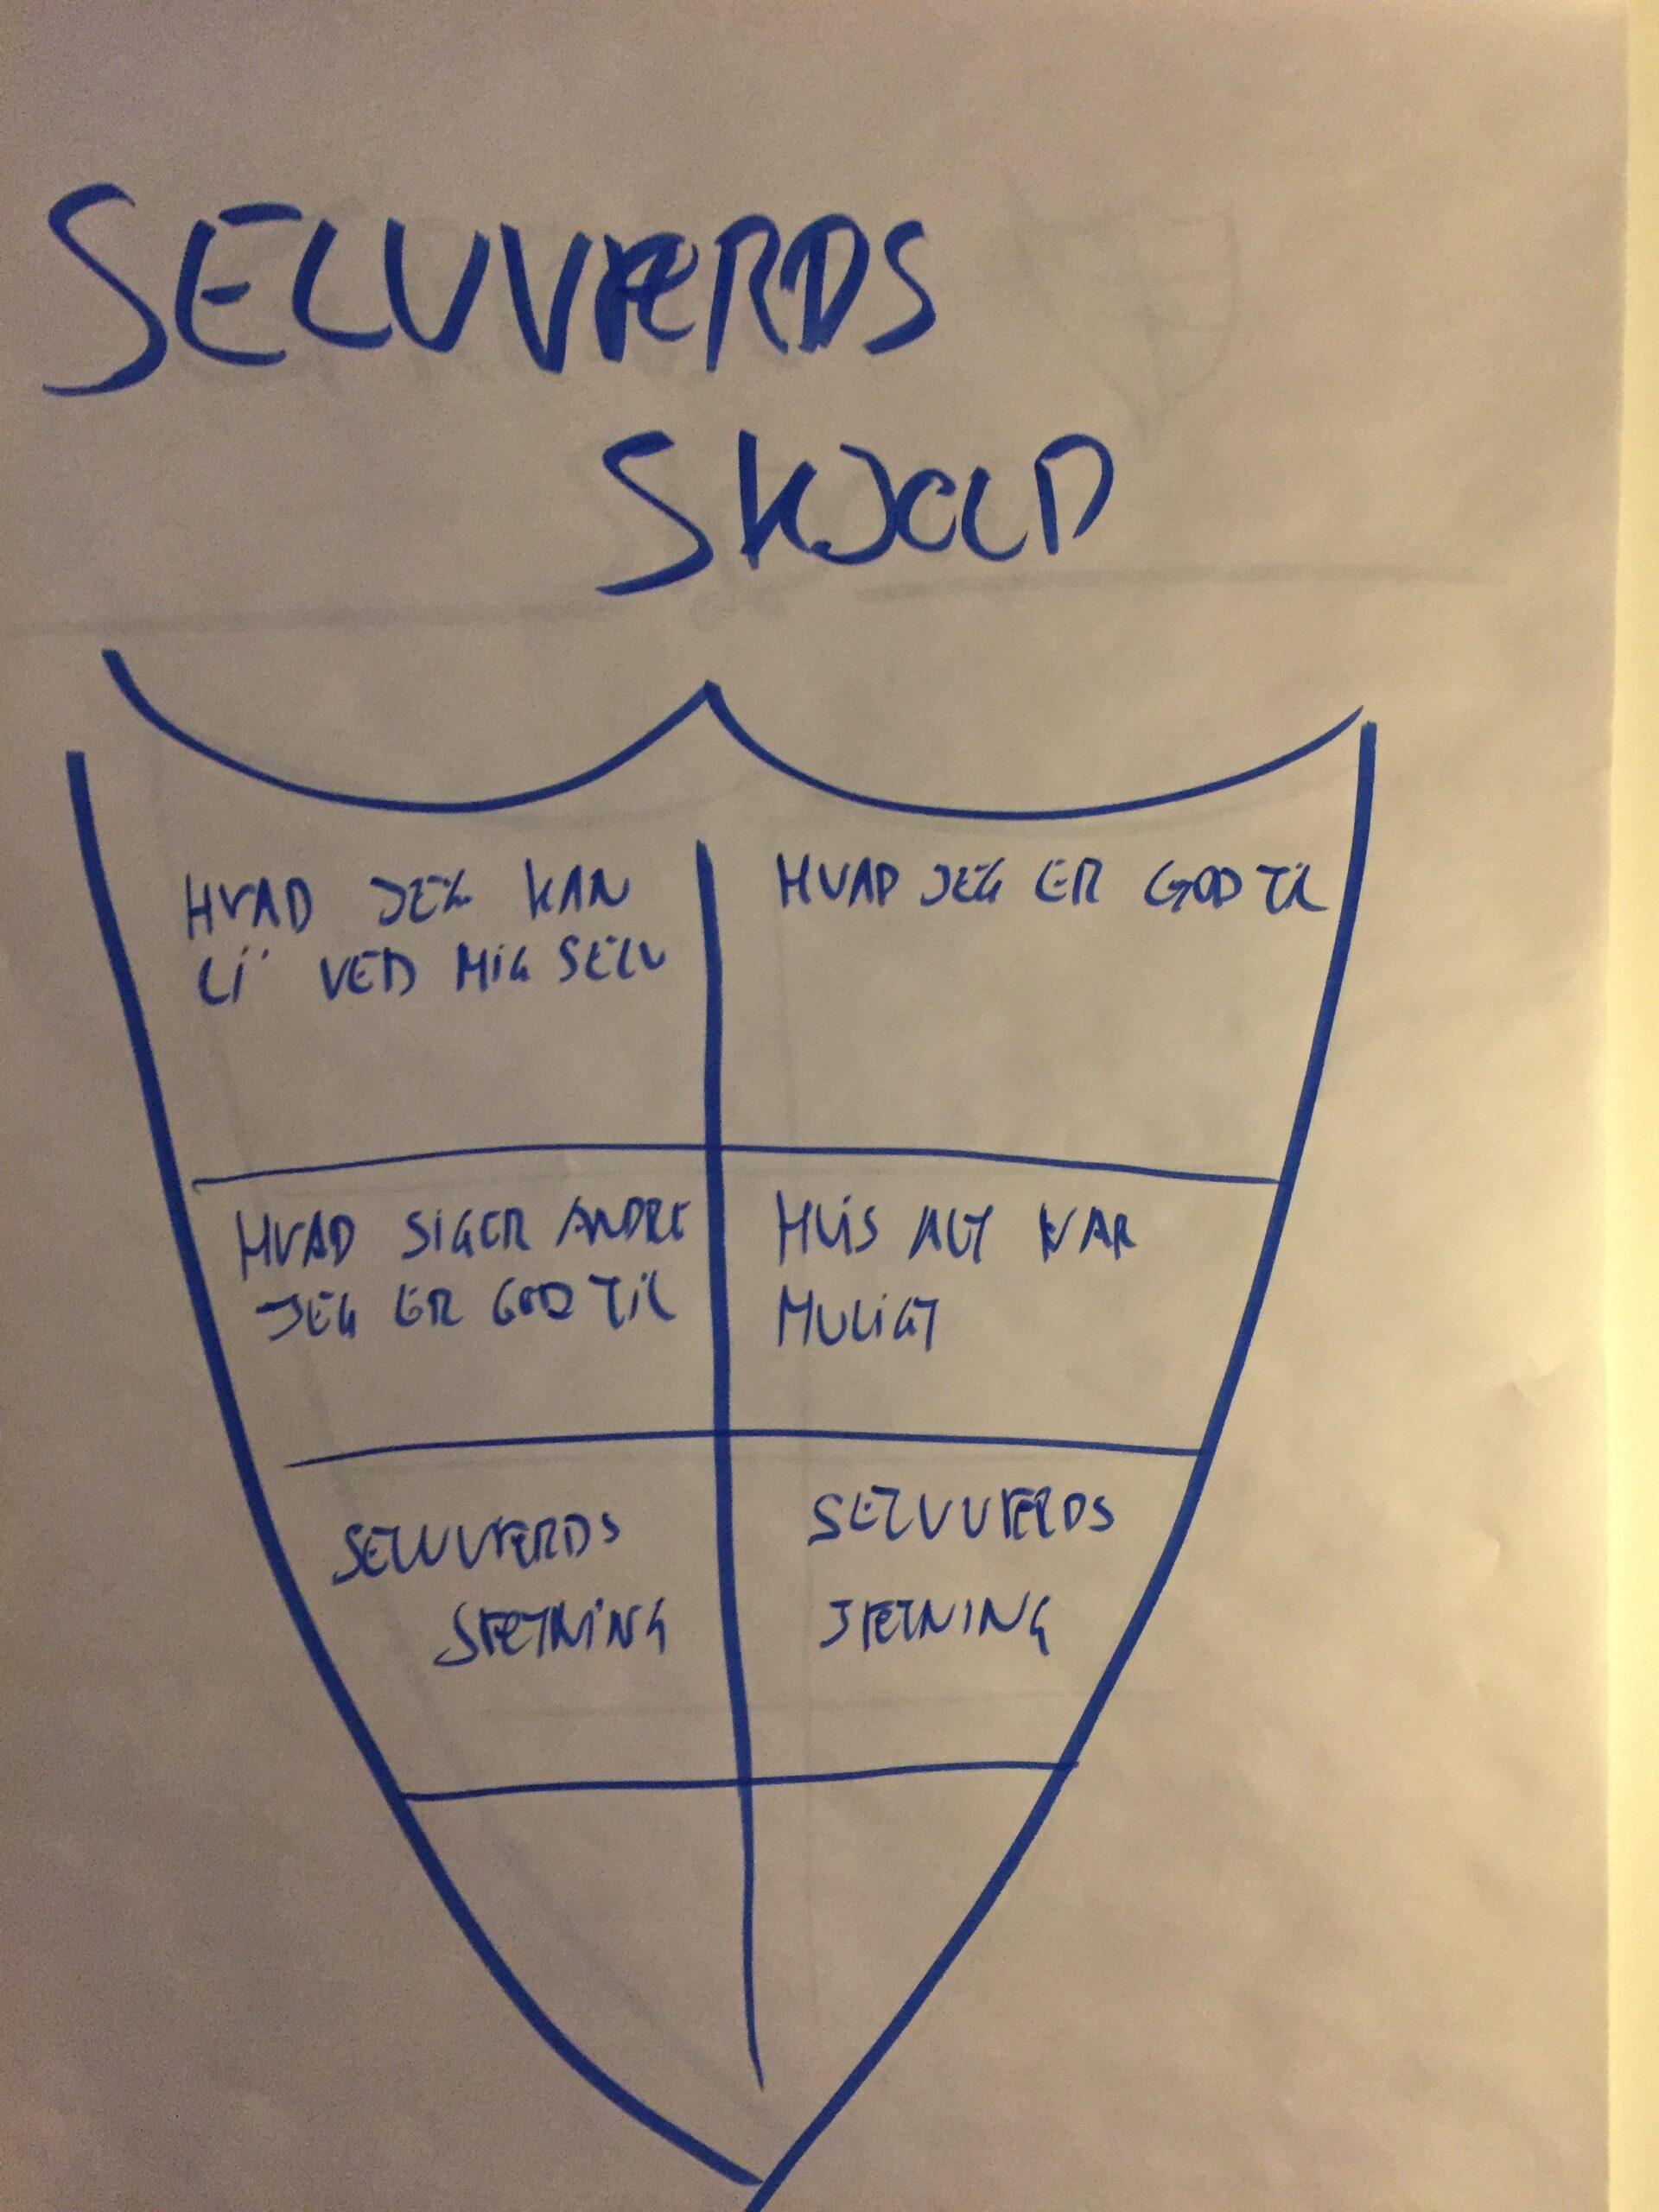 SELVVÆRDS
SKJOLD
HVAD JEG KAN
LI' VED MIG SELV
HVAD JEG ER GOD TIL
HVAD SIGER ANDRE
JEG ER GOD TIL
HVIS ALT VAR
MULIGT
SELVVÆRDS
SÆTNING
SELVVÆRDS
SÆTNING